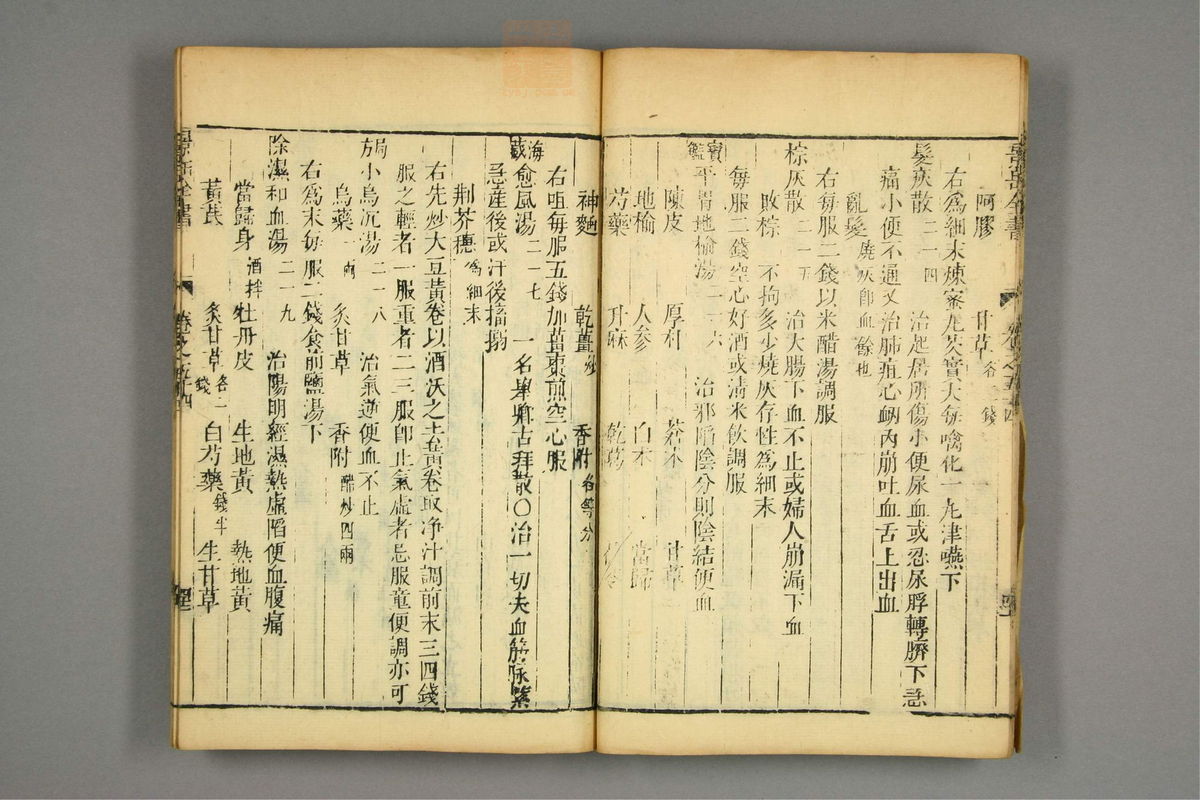 阿膠　甘草各　錢
右爲細末煉蜜丸芡實大每噙化一丸津嚥下
髮灰散二一四　治起居所傷小便尿血或忍尿脬轉臍下急
痛小便不通又治肺疽心衂內崩吐血舌上出血
亂髮燒灰卽血餘也
右每服二錢以米醋湯調服
棕灰散二一五　治大腸下血不止或婦人崩漏下血
敗棕　不拘多少燒灰存性爲細末
每服二錢空心好酒或淸米飮調服
寶鑑平胃地榆湯二一六　治邪陷陰分則陰結便血
陳皮　厚朴　蒼朮　甘草
地榆　人參　白朮　當歸
芍藥　升麻　乾葛　茯苓
神麯　乾薑炒　香附各等分
右咀每服五錢加薑棗煎空心服
海藏愈風湯二一七　一名舉卿古拜散〇治一切失血筋脉緊
急產後或汗後搐搦
荆芥穗爲細末
右先炒大豆黃卷以酒沃之去黃卷取净汁調前末三四錢
服之輕者一服重者二三服卽止氣虛者忌服童便調亦可
局方小烏沉湯二一八　治氣逆便血不止
烏藥一兩　炙甘草　香附醋炒四兩
右爲末每服二錢食前鹽湯下
除濕和血湯二一九　治陽明經濕熱虛陷便血腹痛
當歸身酒拌　牡丹皮　生地黃　熟地黃
黃芪　炙甘草各一錢　白芍藥錢半　生甘草